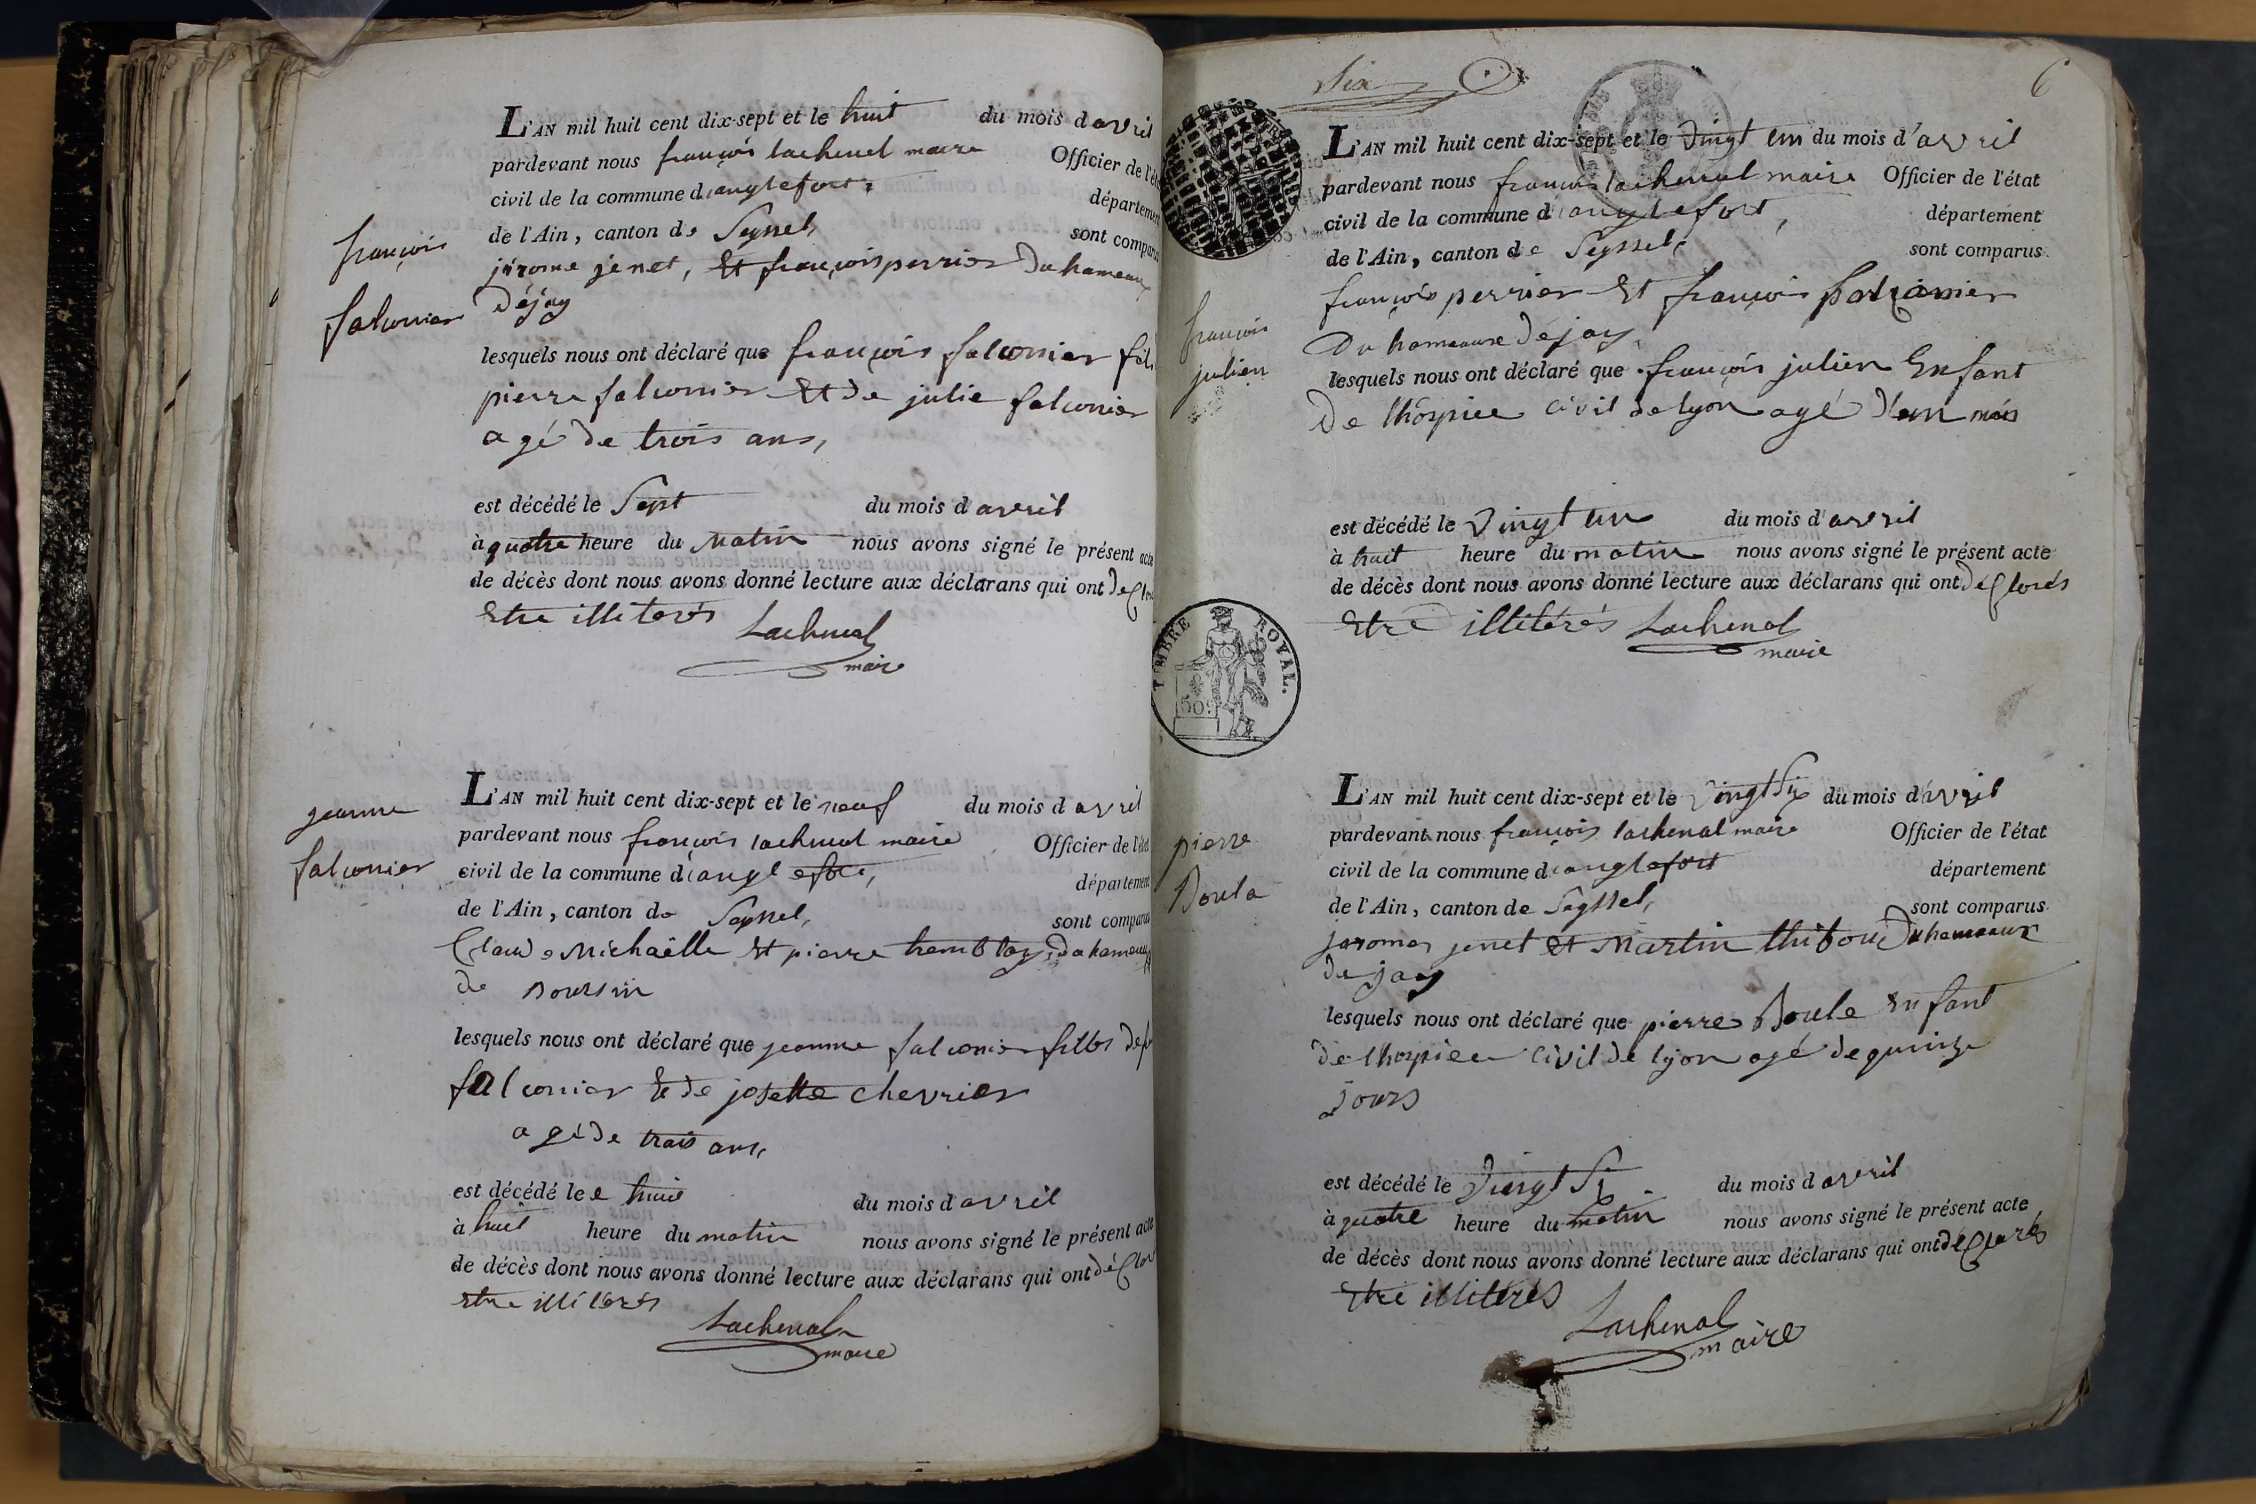 françois
falconier
L'AN mil huit cent dix-sept et le huit du mois d avril
pardevant nous françois lachenal maire Officier de l'état
civil de la commune d'anglefort, département
de l'Ain, canton de Seyssel, sont comparus
jérome jenet, Et françois perrier du hameaux
déjoy
lesquels nous ont déclaré que françois falconier fils
pierre falconier Et de julie falconier
agé de trois ans,
est décédé le Sept du mois d avril
à quatre heure du Matin nous avons signé le présent acte
de décès dont nous avons donné lecture aux déclarans qui ont
Etre illiterés
Lachenal
maire
jeanne
falconier
L'AN mil huit cent dix-sept et le neuf du mois d avril
pardevant nous françois lachenal maire Officier de l'état
civil de la commune d'anglefort, département
de l'Ain, canton de Seyssel, sont comparus
Claude Michaëlle Et pierre tremblay, du hameaux
de Boursin
lesquels nous ont déclaré que jeanne falconier filles de
falconier Et de josette chevrier
agé de trois ans,
est décédé le huit du mois d avril
à huit heure du matin nous avons signé le présent acte
de décès dont nous avons donné lecture aux déclarans qui ont
Etre illiterés
Lachenal
maire
Six 6
L'AN mil huit cent dix-sept et le vingt un du mois d'avril
pardevant nous françois lachenal maire Officier de l'état
civil de la commune d'anglefort, département
de l'Ain, canton de Seyssel, sont comparus
françois perrier Et françois
Du hameaux déjoy,
françois
julien
lesquels nous ont déclaré que françois julien Enfant
De lhospice Civil de lyon agé d'un mois
est décédé le Vingt un du mois d'avril
à huit heure du matin nous avons signé le présent acte
de décès dont nous avons donné lecture aux déclarans qui ont déClarés
Etre illitérés Lachenal
maire
TIMBRE ROYAL.
50c
L'AN mil huit cent dix-sept et le vingt Six du mois d'avril
pardevant nous françois lachenal maire Officier de l'état
pierre
Boula
civil de la commune d'anglefort département
de l'Ain, canton de Seyssel, sont comparus
jerome jenet Et Martin thiboud du hameaux
de joy
lesquels nous ont déclaré que pierre Boule Enfant
de lhospice Civil de lyon agé de quinze
jours
est décédé le Vingt Six du mois d avril
à quatre heure du matin nous avons signé le présent acte
de décès dont nous avons donné lecture aux déclarans qui ont déClarés
Etre illiterés
Lachenal
maire